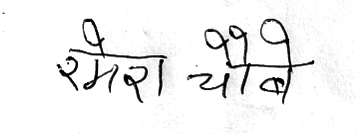 रमेश चौबे